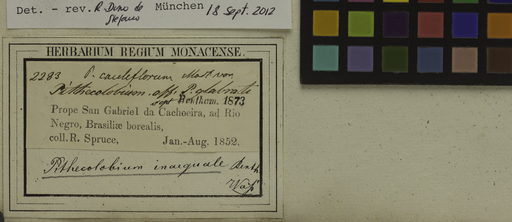 Det. - rev. R. Dino de Stefano München 18 Sept. 2012
HERBARIUM REGIUM MONACENSE.
2283 P. cauliflorum Mart. var
Pithecolobium aff. P. glabrata
Benthem. 1873
Prope San Gabriel da Cachoeira, ad Rio
Negro, Brasiliæ borealis,
coll. R. Spruce, Jan.-Aug. 1852.
Pithecolobium inaequale Benth